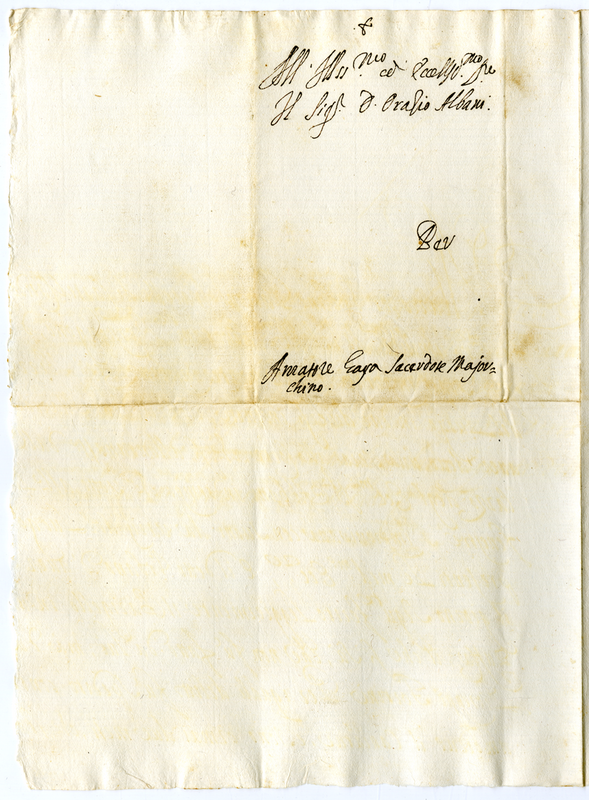 ✝
All' Illu.mo ed Eccell.mo Sre
Il Sigr. D. Orazio Albani.
Per
Amatore Gaya Sacerdote Major=
chino.